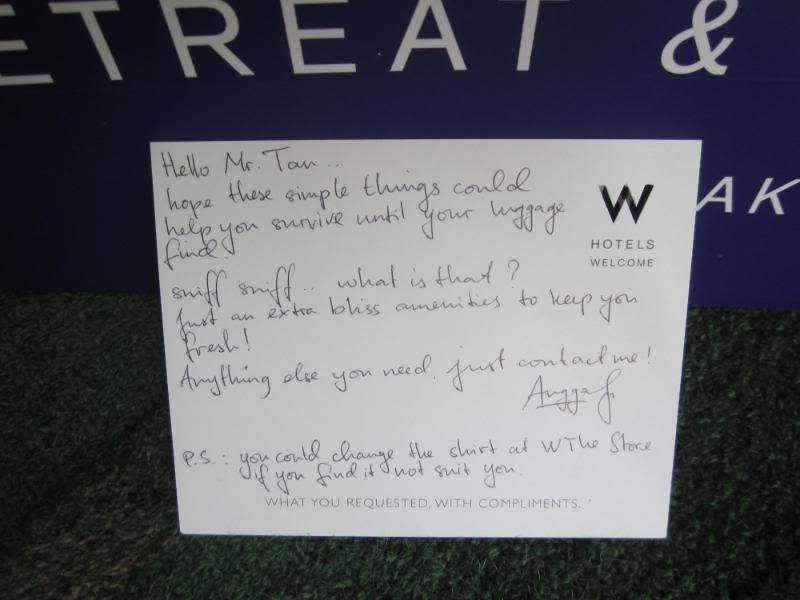 ETREAT &
AK
Hello Mr. Tan...
hope these simple things could
help you survive until your luggage
find.
sniff sniff.. what is that?
Just an extra bliss amenities to keep you
fresh!
Anything else you need, just contact me!
Angga
P.S.: you could change the shirt at W The Store
if you find it not suit you.
W
HOTELS
WELCOME
WHAT YOU REQUESTED, WITH COMPLIMENTS.